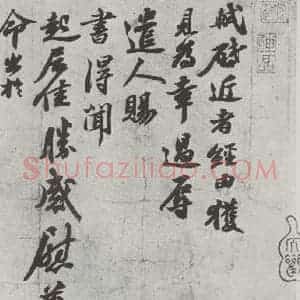 軾啓近者經由獲
見為幸過辱
遣人賜
書得聞
起居佳勝感慰兼
命出於
Shufaziliao.com